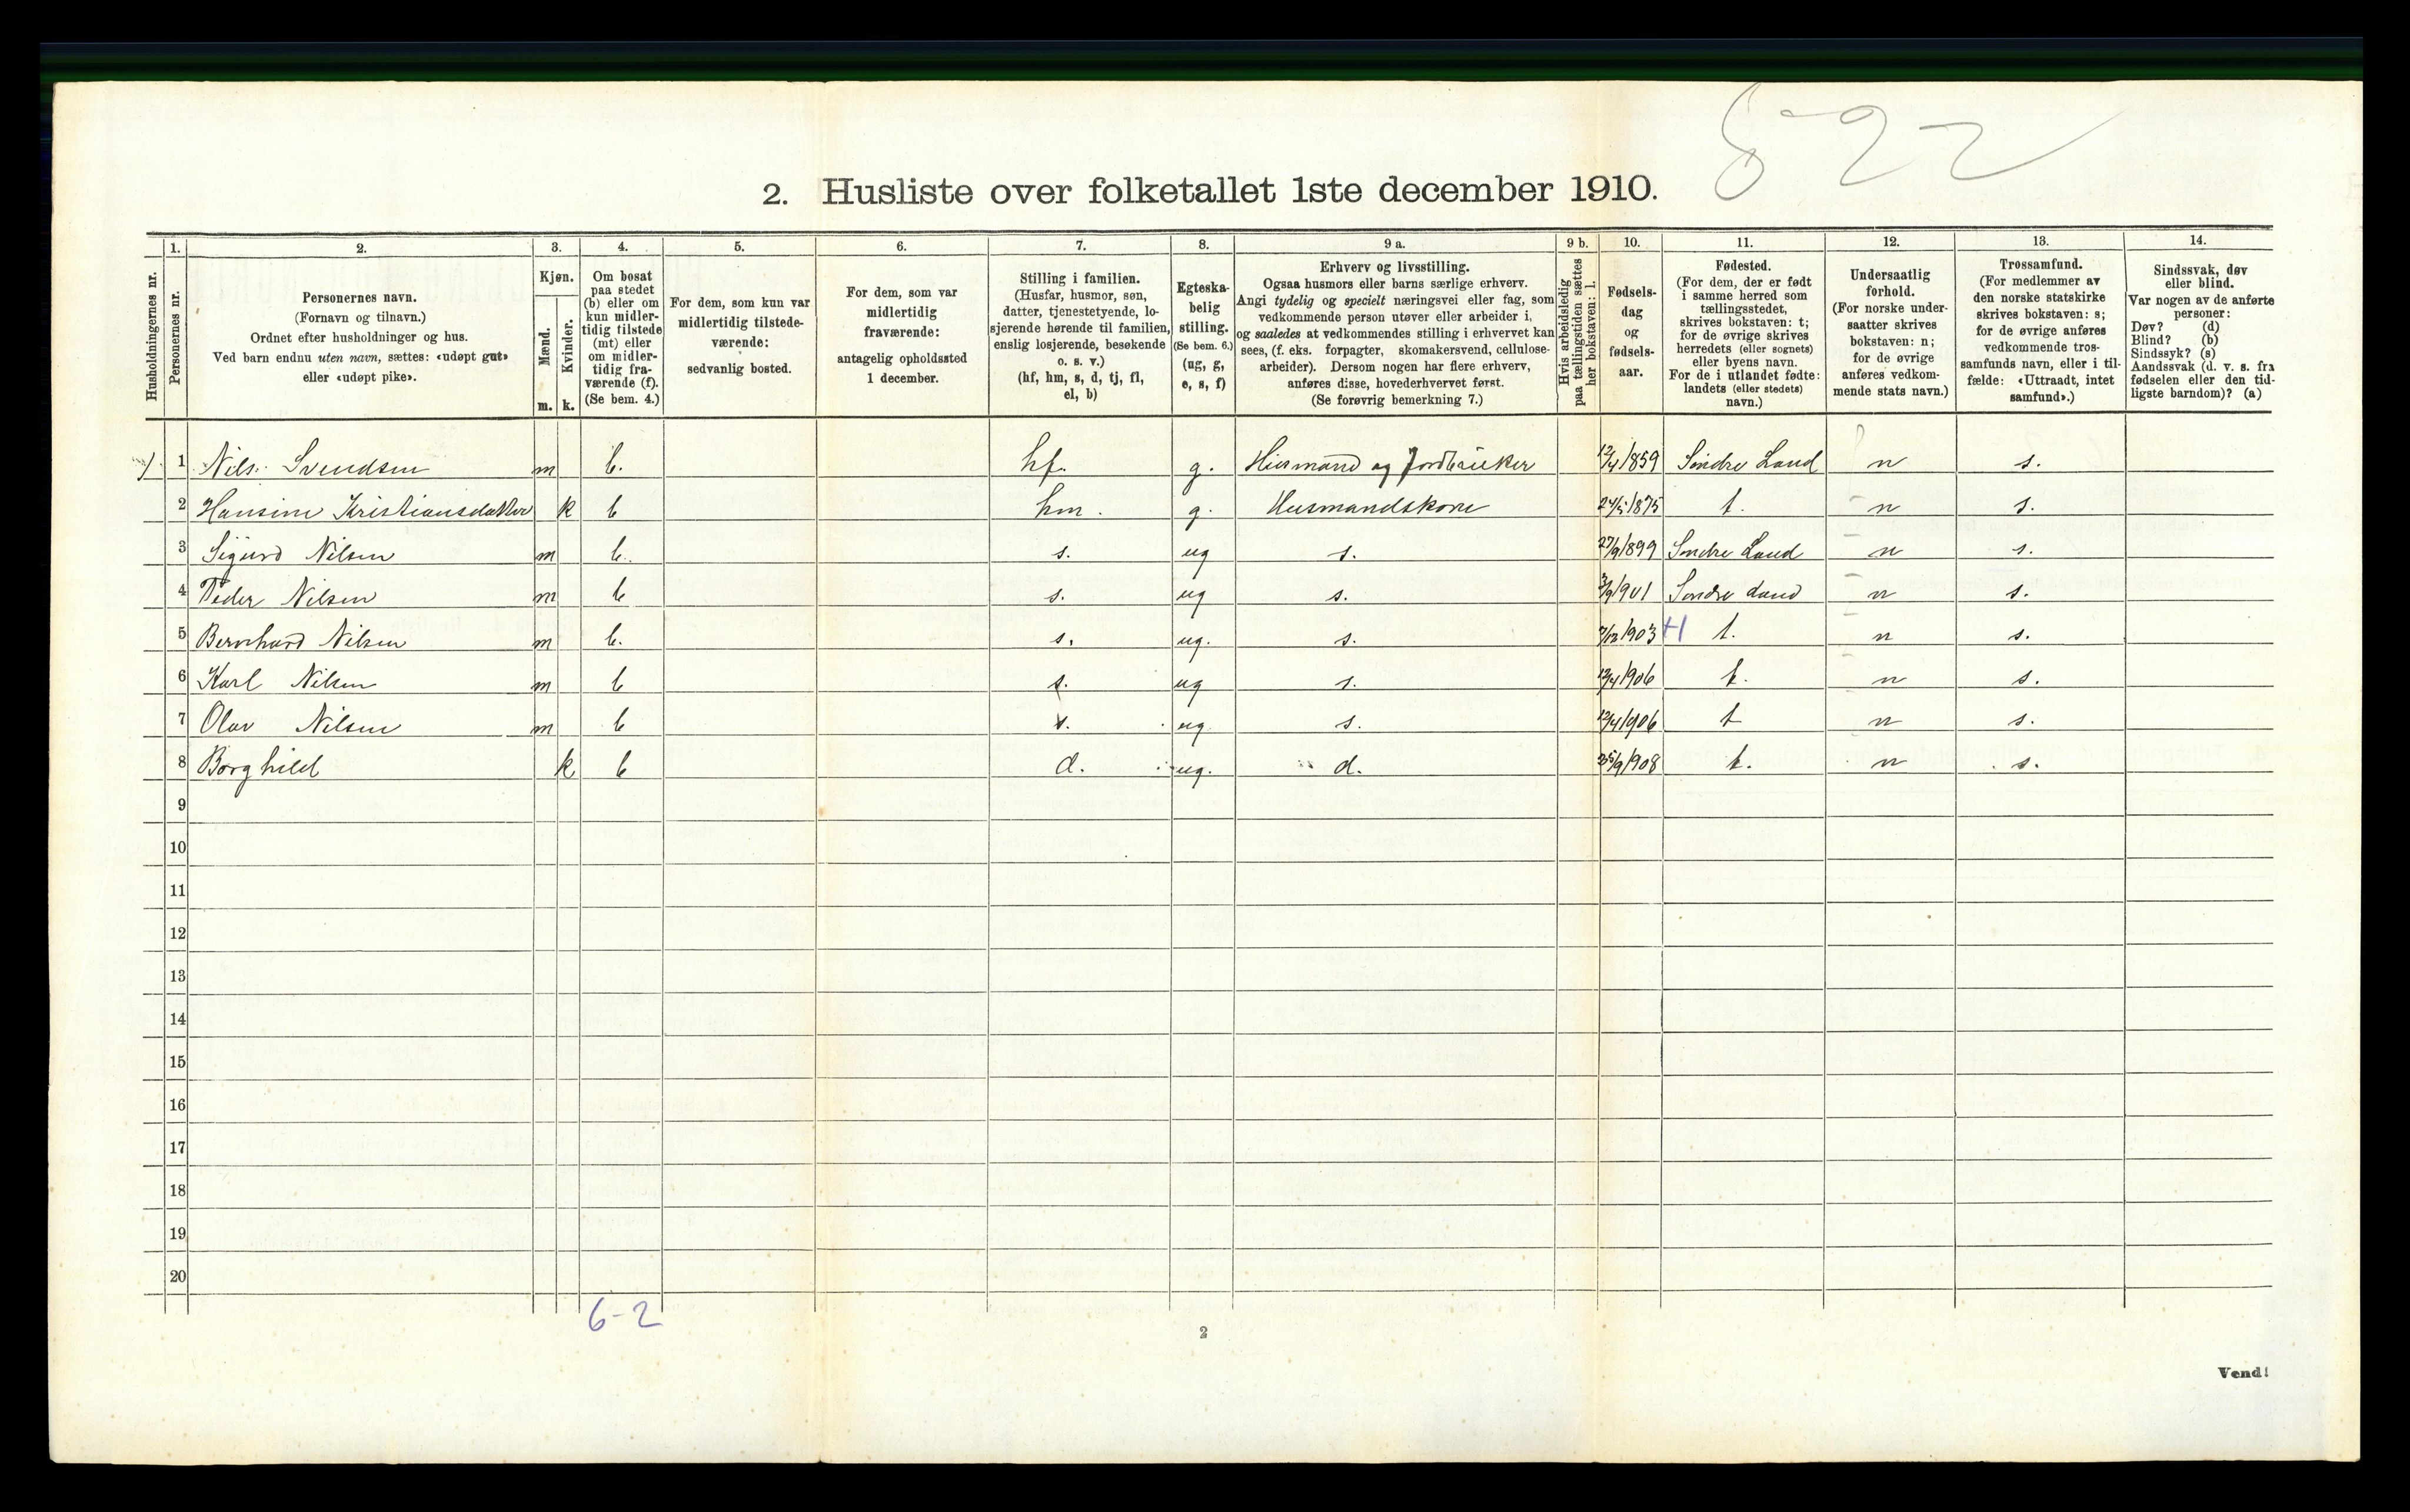 8-22
2. Husliste over folketallet 1ste december 1910.
Husholdningernes nr.
1. Personernes nr.
2. Personernes navn. (Fornavn og tilnavn.) Ordnet efter husholdninger og hus. Ved barn endnu uten navn, sættes: «udøpt gut» eller «udøpt pike».
3. Kjøn. Mænd. m. Kvinder. k.
4. Om bosat paa stedet (b) eller om kun midlertidig tilstede (mt) eller om midlertidig fraværende (f). (Se bem. 4.)
5. For dem, som kun var midlertidig tilstedeværende: sedvanlig bosted.
6. For dem, som var midlertidig fraværende: antagelig opholdssted 1 december.
7. Stilling i familien. (Husfar, husmor, søn, datter, tjenestetyende, losjerende hørende til familien, enslig losjerende, besøkende o. s. v.) (hf, hm, s, d, tj, fl, el, b)
8. Egteskabelig stilling. (Se bem. 6.) (ug, g, e, s, f)
9 a. Erhverv og livsstilling. Ogsaa husmors eller barns særlige erhverv. Angi tydelig og specielt næringsvei eller fag, som vedkommende person utøver eller arbeider i, og saaledes at vedkommendes stilling i erhvervet kan sees, (f. eks. forpagter, skomakersvend, cellulosearbeider). Dersom nogen har flere erhverv, anføres disse, hovederhvervet først. (Se forøvrig bemerkning 7.)
9 b. Hvis arbeidsledig paa tællingstiden sættes her bokstaven: l.
10. Fødselsdag og fødselsaar.
11. Fødested. (For dem, der er født i samme herred som tællingsstedet, skrives bokstaven: t; for de øvrige skrives herredets (eller sognets) eller byens navn. For de i utlandet fødte: landets (eller stedets) navn.)
12. Undersaatlig forhold. (For norske undersaatter skrives bokstaven: n; for de øvrige anføres vedkommende stats navn.)
13. Trossamfund. (For medlemmer av den norske statskirke skrives bokstaven: s; for de øvrige anføres vedkommende trossamfunds navn, eller i tilfælde: «Uttraadt, intet samfund».)
14. Sindssvak, døv eller blind. Var nogen av de anførte personer: Døv? (d) Blind? (b) Sindssyk? (s) Aandssvak (d. v. s. fra fødselen eller den tidligste barndom)? (a)
1 Nils Svendsen m b. hf. g. Husmand og Jordbruker 12/4 1859 Söndre Land n s.
2 Hansine Kristiansdatter k b hm. g. Husmandskone 24/5 1875 t. n s.
3 Sigurd Nilsen m b. s. ug s. 27/9 1899 Söndre Land n s.
4 Peder Nilsen m b s. ug s. 3/9 1901 Söndre Land n s.
5 Bernhard Nilsen m b. s. ug. s. 7/12 1903 t. n s.
6 Karl Nilsen m b s. ug s. 12/4 1906 t. n s.
7 Olav Nilsen m b s. ug. s. 12/4 1906 t n s.
8 Borghild k b d. ug. d. 25/9 1908 t. n s.
9
10
11
12
13
14
15
16
17
18
19
20
6-2
2
Vend!